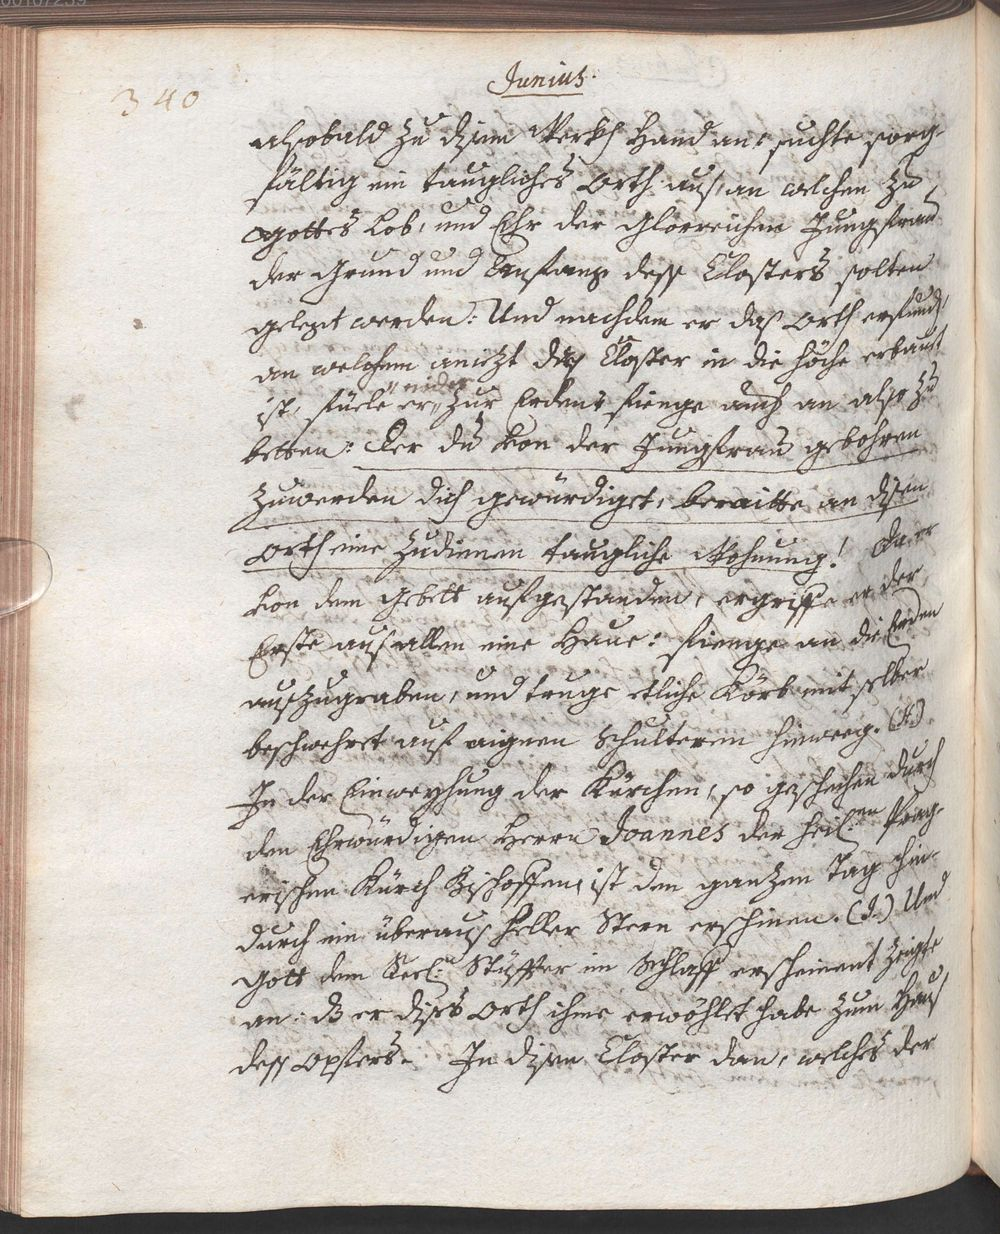 340
Junius.
alsobald zu disem Werkh Hand an: suchte sorg-
fältig ein taugliches Orth aus, an welchen zu
Gottes Lob, und Ehr der glorreichen Jungfrau
der Grund und Anfang dess Closters solten
gelegt werden: Und nachdem er das Orth erfund,
an welchem anietzt dis Closter in die höche erbauet
ist, fiele er nider zur Erden: fienge auch an also zu
betten: Der du von der Jungfrau gebohren
zuwerden dich gewürdiget, beraitte an disen
Orth eine zudienen taugliche Wohnung! Da er
von dem Gebett aufgestanden, ergriffe er der
Erste aus allen eine Haue: fienge an die Erden
auszugraben, und truge etliche Körb mit selber
beschwehret auf aignen Schulteren hinweeg.
In der Einweyhung der Kürchen, so geschechen durch
den Ehrwürdigen Herrn Joannes der heil:en Prag-
erischen Kürch Bischoffen, ist den gantzen Tag hin-
durch ein überaus heller Stern erschinen. Und
Gott dem Seel: Stüffter im Schlaff erscheinent zeigte
an: dß er dises Orth ihme erwöhlet habe zum Haus
dess Opfers. In disem Closter dan, welches der